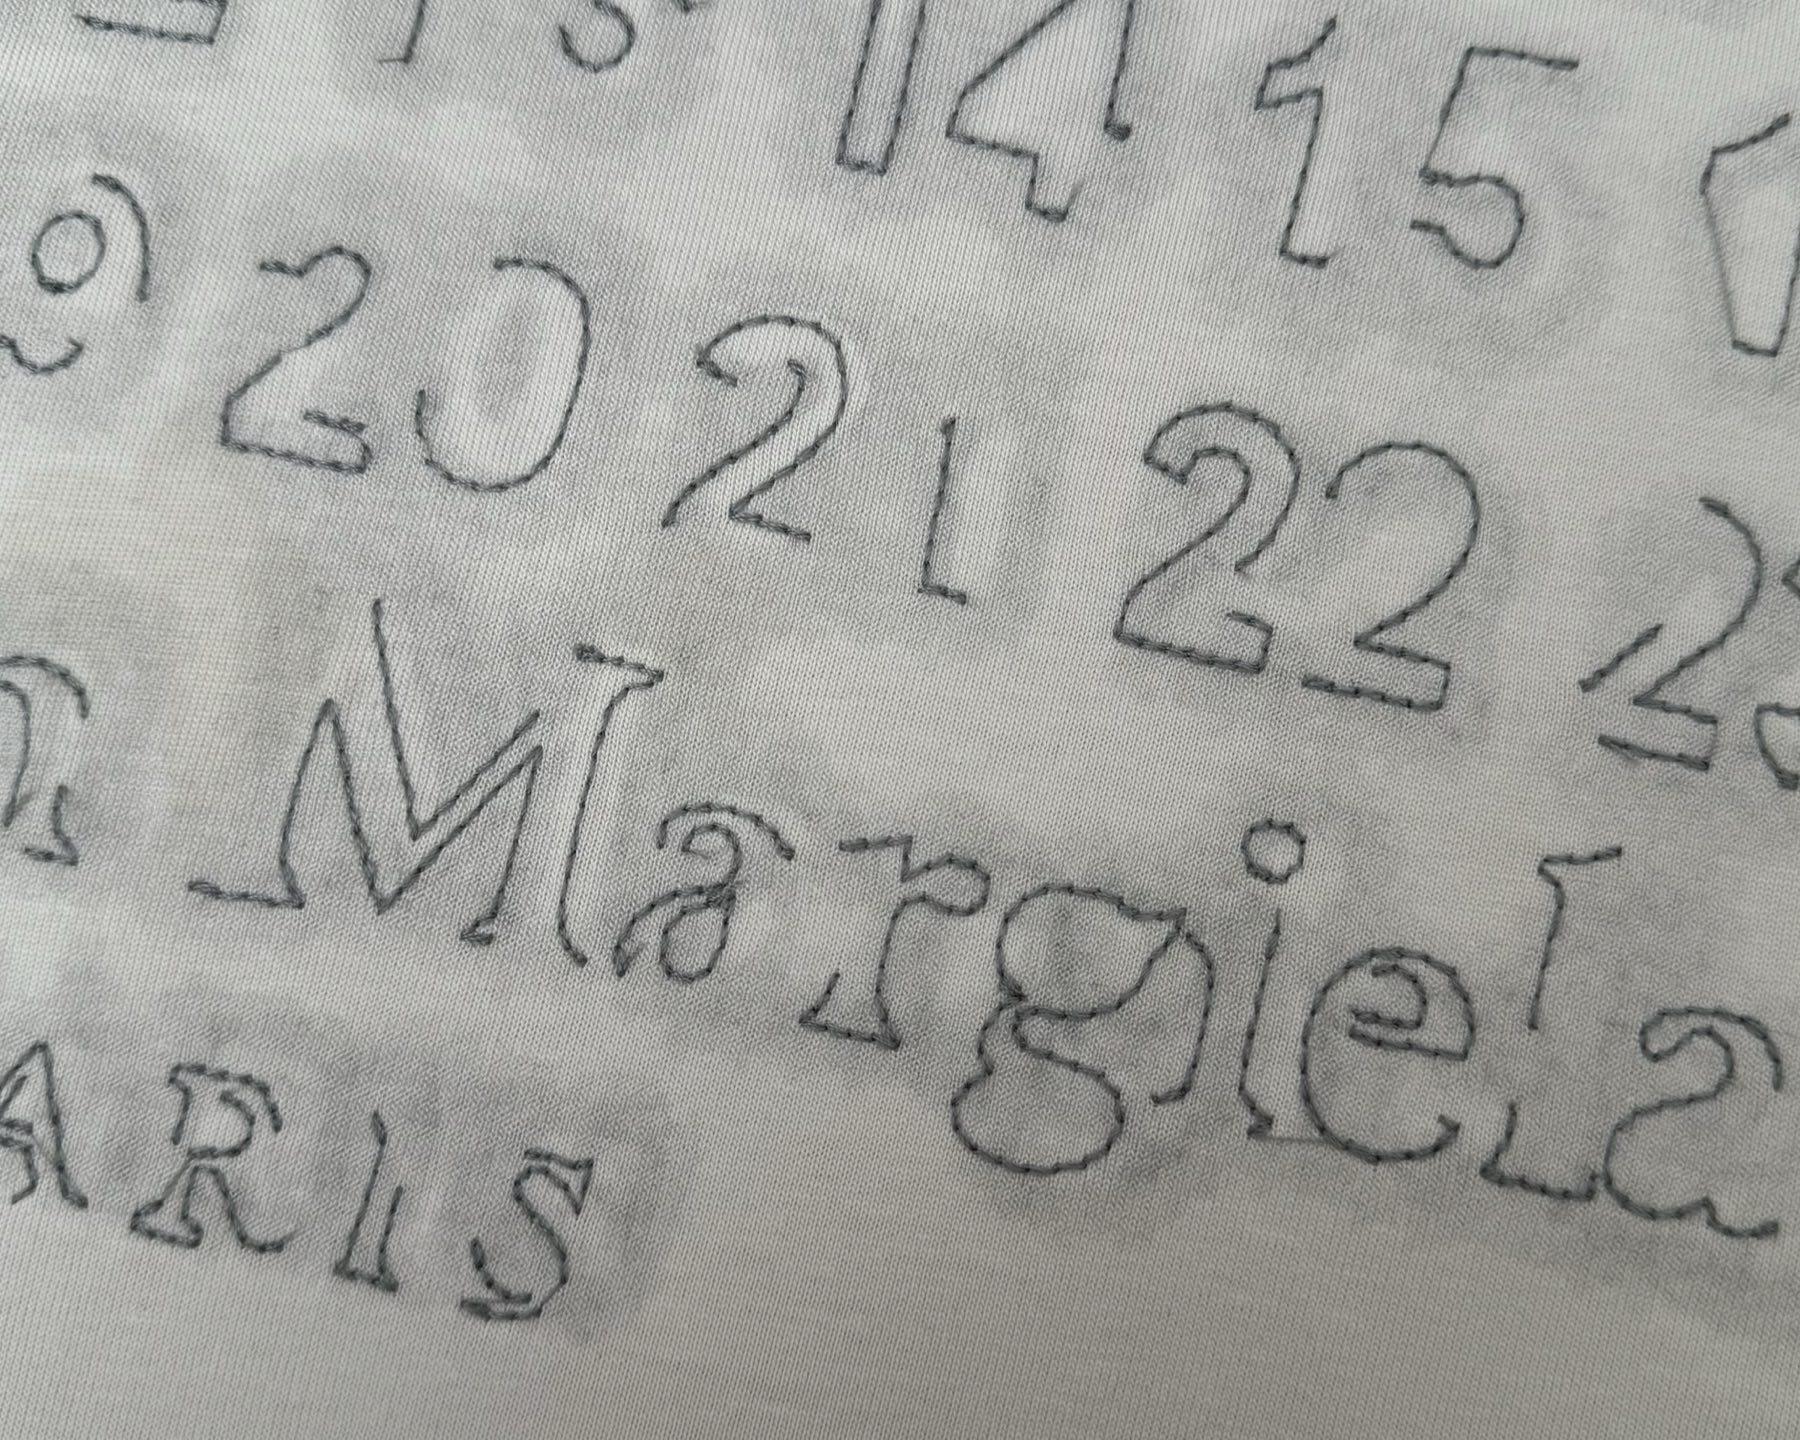 14 15
20 21 22 23
Margiela
PARIS